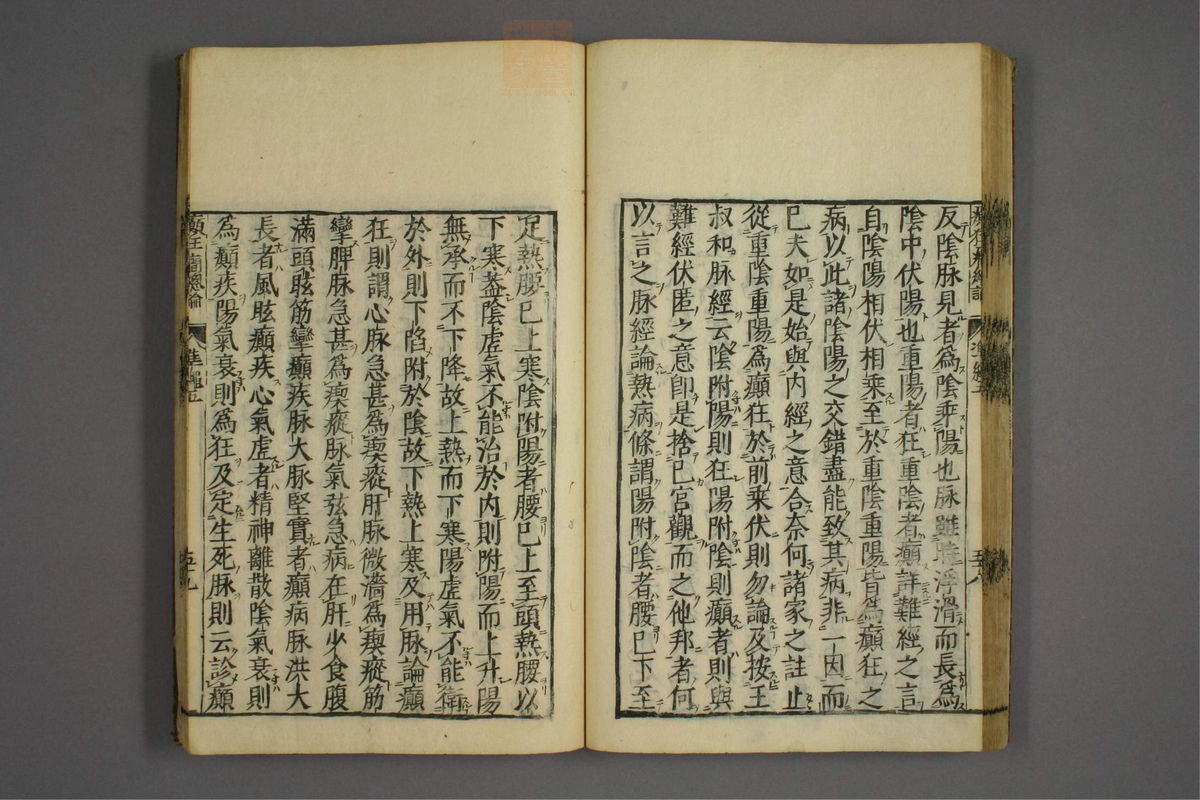 反陰脉見者爲陰乘陽也脉雖時浮滑而長爲
陰中伏陽也重陽者狂重陰者癲詳難經之言
自陰陽相伏相乘至於重陰重陽皆爲癲狂之
病以此諸陰陽之交錯盡能致其病非一因而
已夫如是始與内經之意合奈何諸家之註止
從重陰重陽爲癲狂於前乘伏則勿論及按王
叔和脉經云陰附陽則狂陽附陰則癲者則與
難經伏匿之意卽是捨已宮觀而之他邦者何
以言之脉經論熱病條謂陽附陰者腰已下至
足熱腰已上寒陰附陽者腰已上至頭熱腰以
下寒蓋陰虚氣不能治於内則附陽而上升陽
無承而不下降故上熱而下寒陽虚氣不能衛
於外則下陷附於陰故下熱上寒及用脉論癲
狂則謂心脉急甚爲瘈瘲肝脉微濇爲瘈瘲筋
攣脾脉急甚爲瘈瘲脉氣弦急病在肝少食腹
滿頭眩筋攣癲疾脉大脉堅實者癲病脉洪大
長者風眩癲疾心氣虚者精神離散陰氣衰則
爲癲疾陽氣衰則爲狂及定生死脉則云診癲
癲狂癇總論
準繩五
五十九